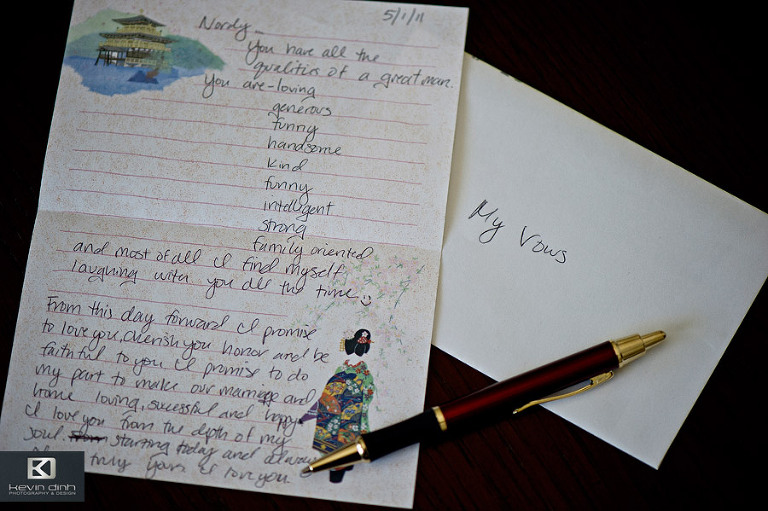 5/1/11
Nordy-
you have all the
qualities of a great man.
You are - loving
generous
funny
handsome
kind
funny
intelligent
strong
family oriented
and most of all I find myself
laughing with you all the time
From this day forward I promise
to love you, cherish you honor and be
faithful to you I promise to do
my part to make our marriage and
home loving, sucessful and happy
I love you from the depth of my
soul from starting today and always
truly yours I love you
My Vows
kevin dinh
PHOTOGRAPHY & DESIGN